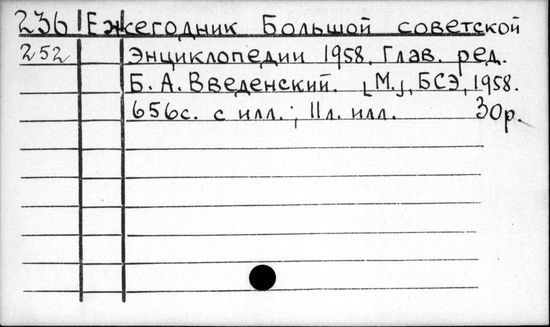 236 Ежегодник Большой советской
252 Энциклопедии 1958. Глав. ред.
Б. А. Введенский. [М.], БСЭ, 1958.
656с. с илл.; 11л. илл. 30р.